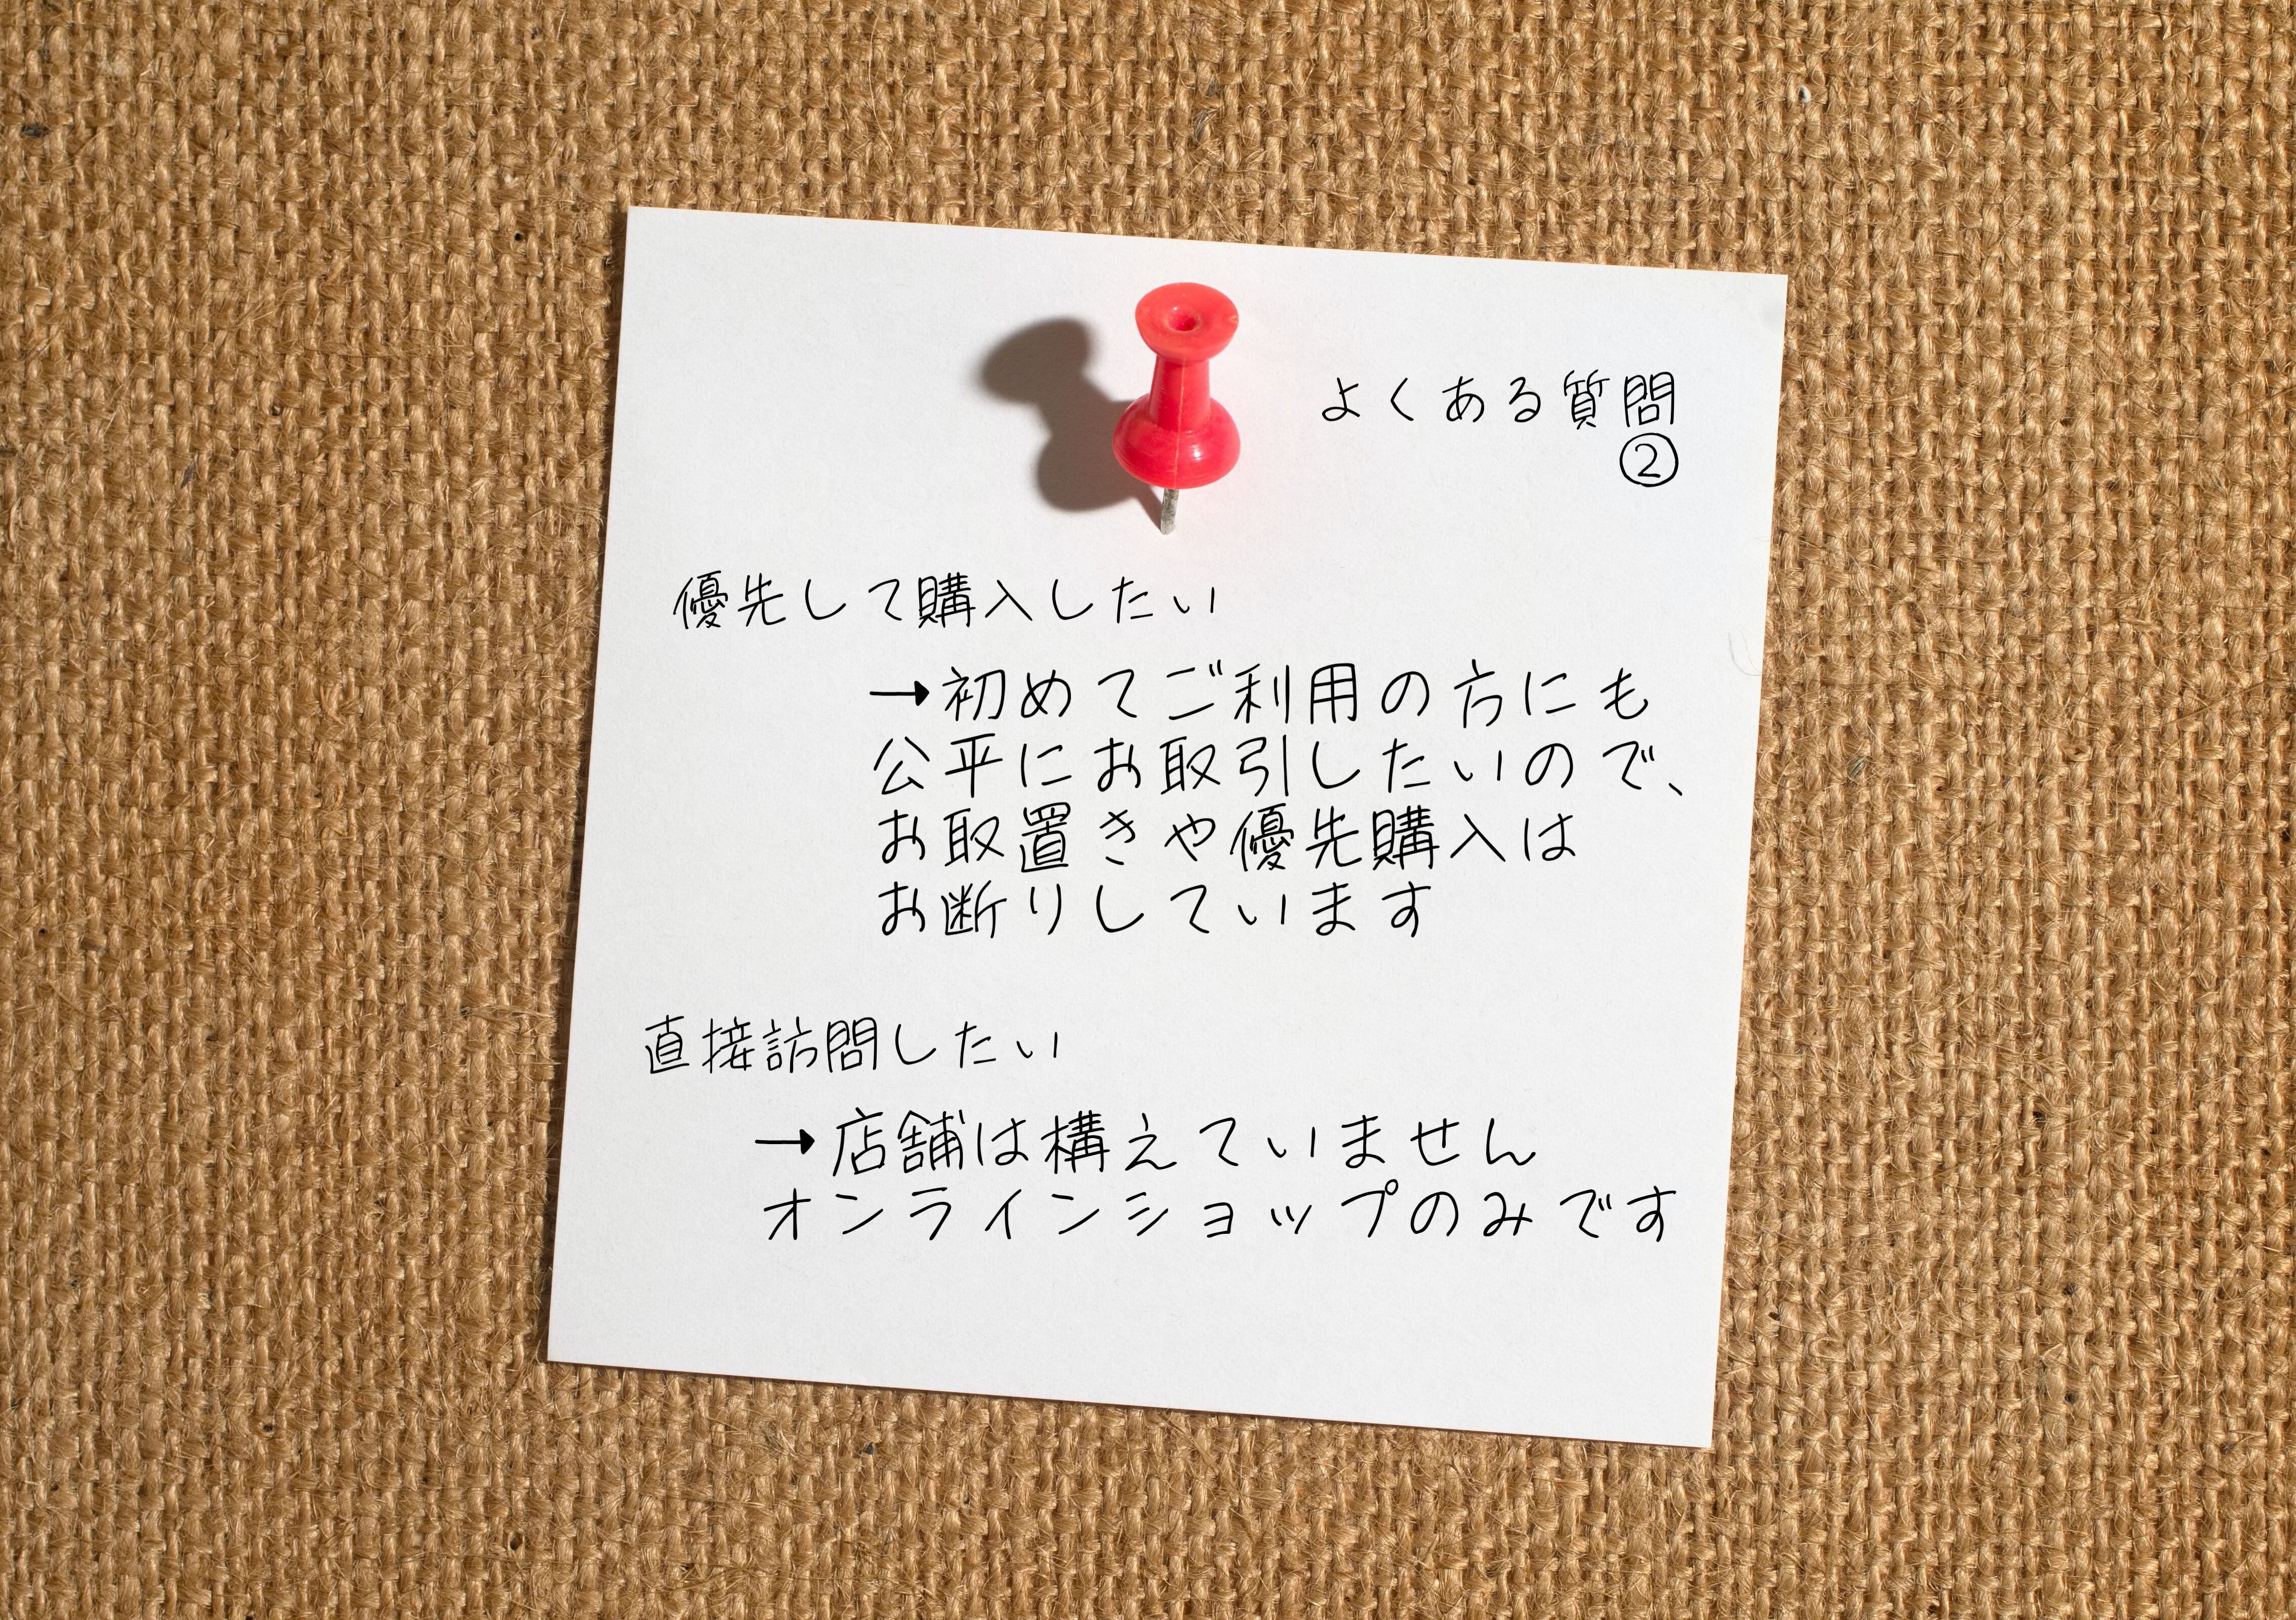 よくある質問
②
優先して購入したい
→初めてご利用の方にも
公平にお取引したいので、
お取置きや優先購入は
お断りしています
直接訪問したい
→店舗は構えていません
オンラインショップのみです